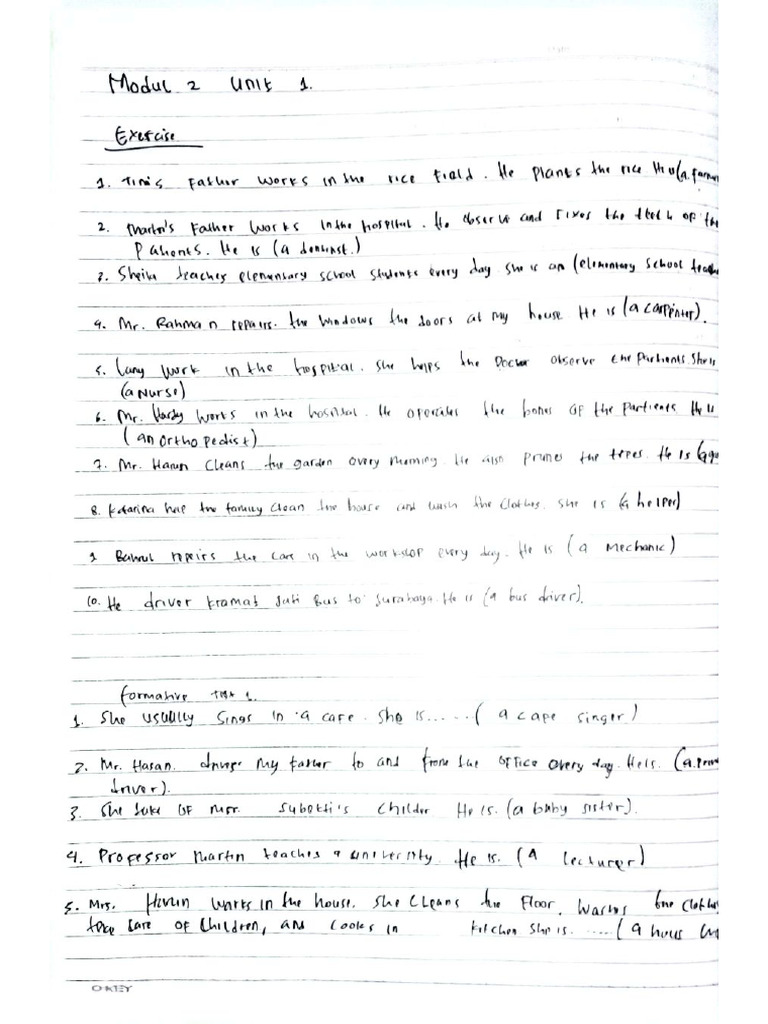 Modul 2 Unit 1.
Exercise
1. Tini's Father works in the rice field. He plants the rice (a farmer
2. Martin's Father works in the hospital. He observe and fixes the teeth of the
Patients. He is (a dentist.)
3. Sheila teaches elementary school students every day she is an (elementary school teache
4. Mr. Rahman repairs. the windows the doors at my house He is (a carpinter).
5. Lany work in the hospital. she helps the Doctor observe the Partients. She is
(a Nurse)
6. Mr. Hardy works in the hospital. He operates the bones of the Partients He is
(an ortho pedist)
7. Mr. Harun Cleans the garden every morning. He also prunes the trees. He is (a
8. Katarina help the family clean the house and wash the clothes. she is (a helper)
9 Bahrul repairs the car in the workshop every day. He is (a mechanic)
10. He driver Kramat Jati Bus to Surabaya. He is (a bus driver).
formative Test 1.
1. She usually sings in a cafe. She is......(a cape singer)
2. Mr. Hasan. drives my father to and from the office every day. He is. (a
driver).
3. She take of Mrs. Subekti's childer He is. (a baby sister).
4. Professor Martin teaches a university. He is. (A lecturer)
5. Mrs. works in the house. She cleans the Floor. Washes the cloth
take care of children, and cooks in kitchen She is. .....(a hous
OKEY